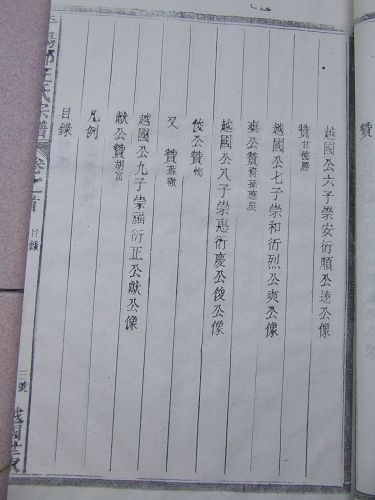 贊
越國公六子崇安衍順公達公像
贊甘德勝
越國公七子崇和衍烈公爽公像
越國公八子崇惠衍慶公俊公像
俊公贊
又贊
越國公九子崇福衍正公獻公像
獻公贊胡富
凡例
目錄
汪氏宗譜
卷之首
目錄
三號